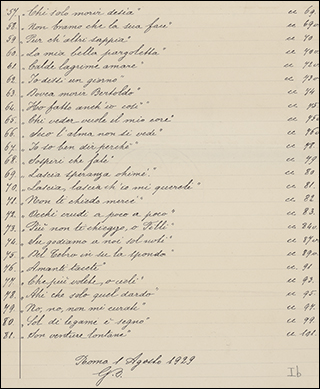 57. "Chi solo morir desia" cc 69.
58. "Non bramo che la sua face" cc 69v
59. "Pur ch'altri sappia" cc 70
60. "La mia bella pargoletta" cc 71v.
61. "Calde lagrime amare" cc 72v
62. "Io dissi un giorno" cc 73v.
63. "Dovea morir Bertoldo" cc 74
64. "Ho fatto anch'io così" cc 75
65. "Chi veder vuole il mio core" cc 75v
66. "Seco l'alma non si vede" cc 76v
67. "Io so ben dir perchè" cc 78.
68. "Sospiri che fate" cc 79
69. "Lascia speranza ohimè" cc 80
70. "Lascia, lascia ch'io mi quereli" cc 81.
71. "Non ti chiedo mercè" cc 82
72. "Occhi crudi a poco a poco" cc 83.
73. "Più non ti chieggo, o Filli" cc 86v.
74. "Su godiamo a noi sol" cc 87v
75. "Del Tebro in su la sponda" cc 89v.
76. "Amanti tacete" cc 91.
77. "Che più volete, o" cc 93.
78. "Ahi che solo quel dardo" cc 95.
79. "No, no, non mi curate" cc 97.
80 "Sol di legame è segno" cc 99.
81. "Son venture lontane" cc 101.
Roma 1 Agosto 1929
Ib